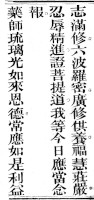 志滿修六波羅密廣修供養福慧莊嚴
忍辱精進證菩提道我等今日應當念
報
藥師琉璃光如來恩德常應如是利益